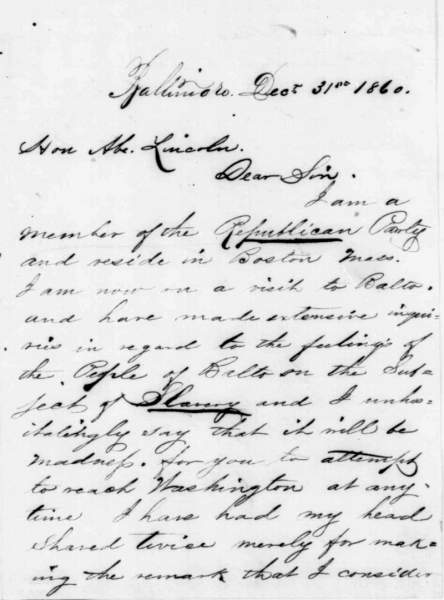 Baltimore. Dect 31st 1860.
Hon Abe. Lincoln.
Dear Sir.
I am a
member of the Republican Party
and reside in Boston Mass.
I am now on a visit to Balto.
and have made extensive inqui-
ries in regard to the feelings of
the People of Balto on the Sub-
ject of Slavery and I unhes-
itatingly say that it will be
madness. for you to attempt
to reach Washington at any-
time I have had my head
Shaved twice merely for mak-
ing the remark that I consider